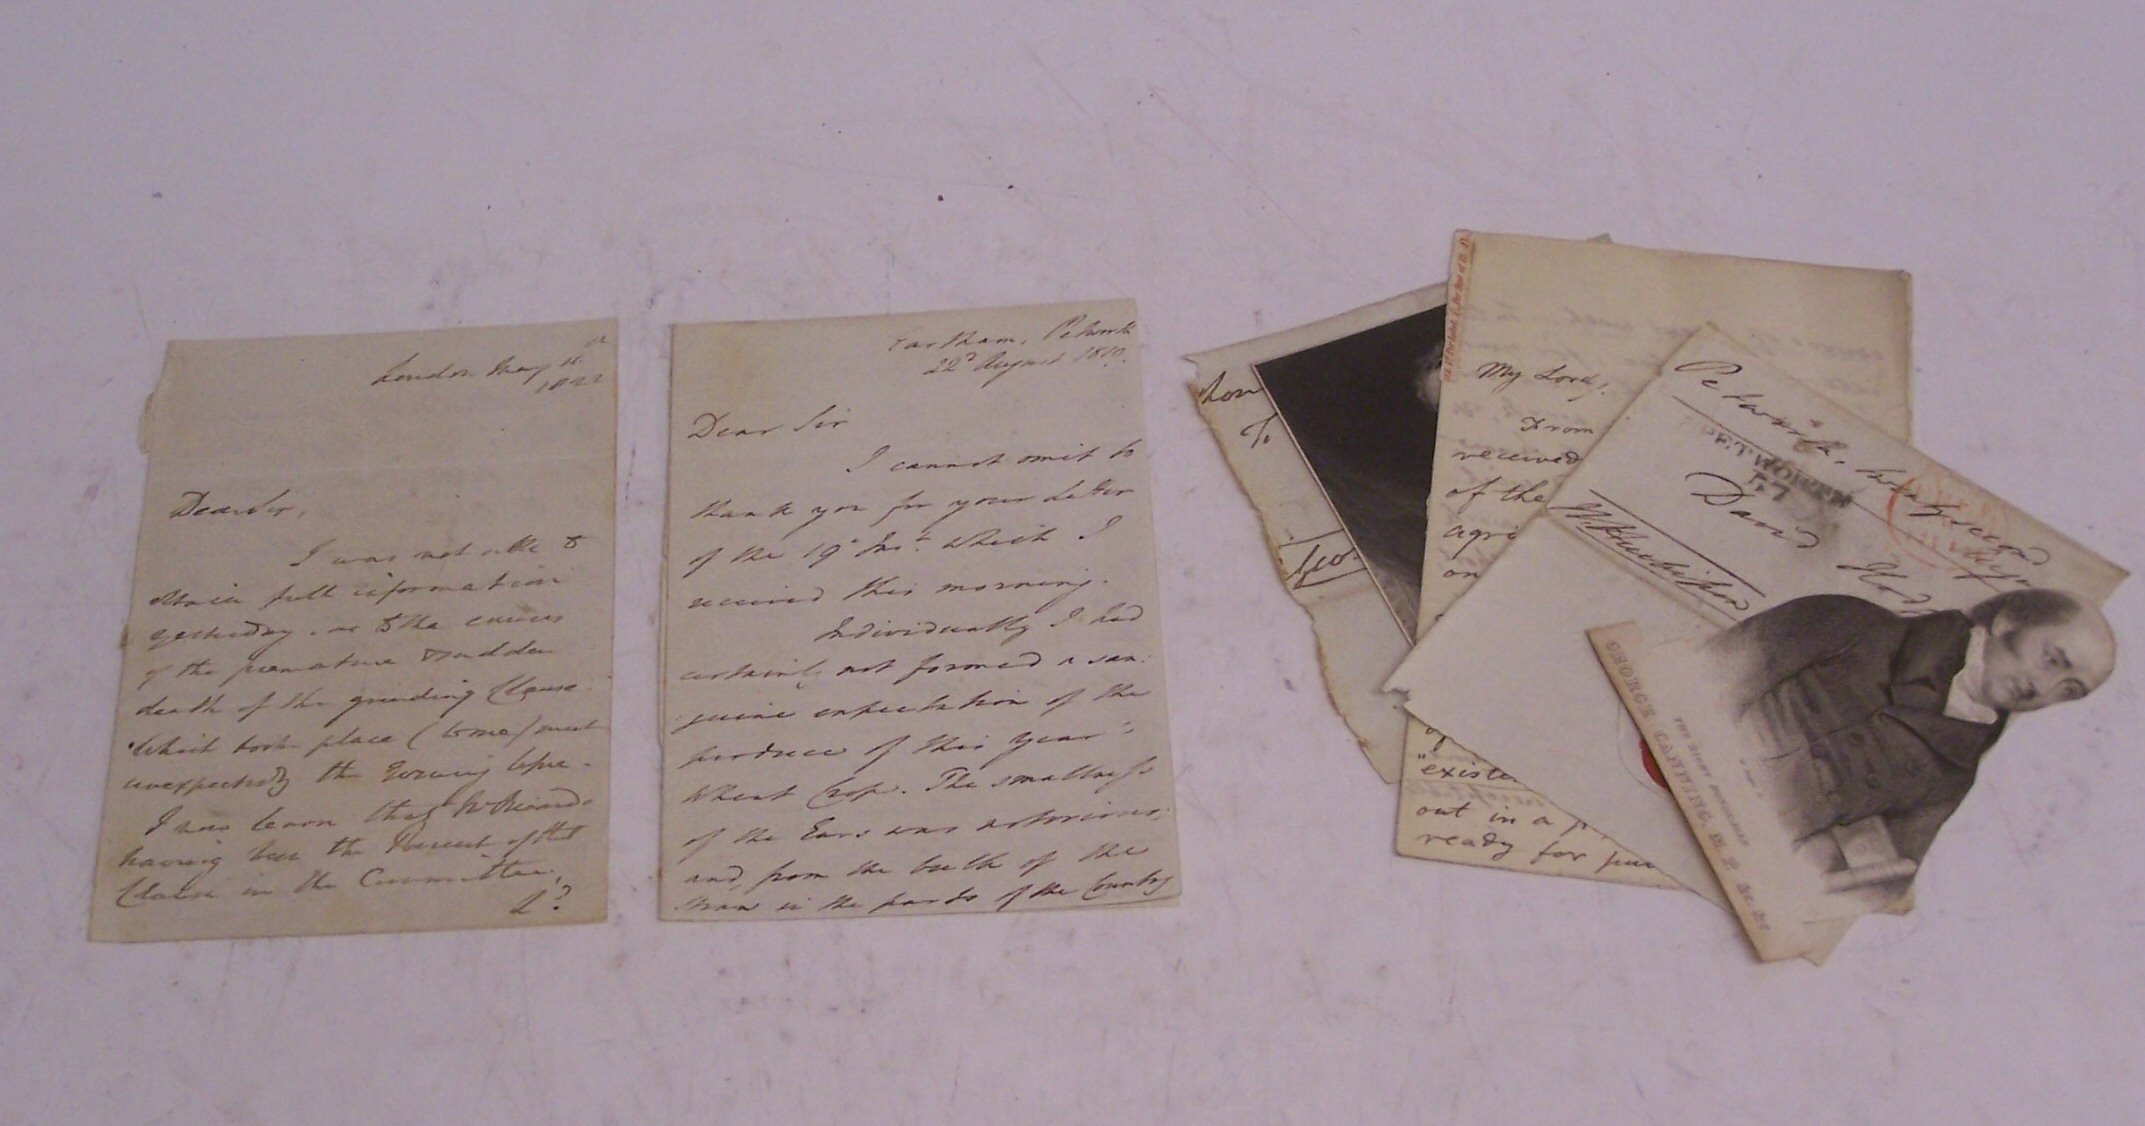 London May
Dear Sir,
I was not able to
obtain full information
yesterday as to the causes
of the premature & sudden
death of the grinding Clause
which took place (to me) most
unexpectedly the Evening before.
I now learn that Mr Ricardo
having been the Parent of that
Clause in the Committee,
Eartham, Petworth
22d August 1810.
Dear Sir
I cannot omit to
thank you for your Letter
of the 19th Inst. which I
received this morning.
Individually I had
certainly not formed a san:
guine expectation of the
produce of this year's
Wheat Crop. The smallness
of the Ears was notorious;
and, from the bulk of the
Straw in the parts of the Country
To
My Lord,
From
received
of the
agri
on
of
"existe
out in a p
ready for pu
Petworth,
PETWORTH
57
David
W Huskisson
GEORGE CANNING, M. P. &c &c
THE RIGHT HONORABLE